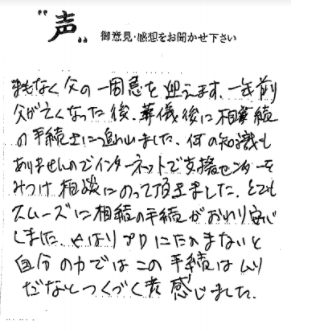 "声" 御意見・感想をお聞かせ下さい
まもなく父の一周忌を迎えます。一年前
父が亡くなった後、葬儀後に相続
の手続きに追われました。何の知識も
ありませんのでインターネットで支援センターを
みつけ相談にのって頂きました。とても
スムーズに相続の手続がおわり安心
しました。やはりプロにたのまないと
自分の力ではこの手続はムリ
だなとつくづく 感じました。